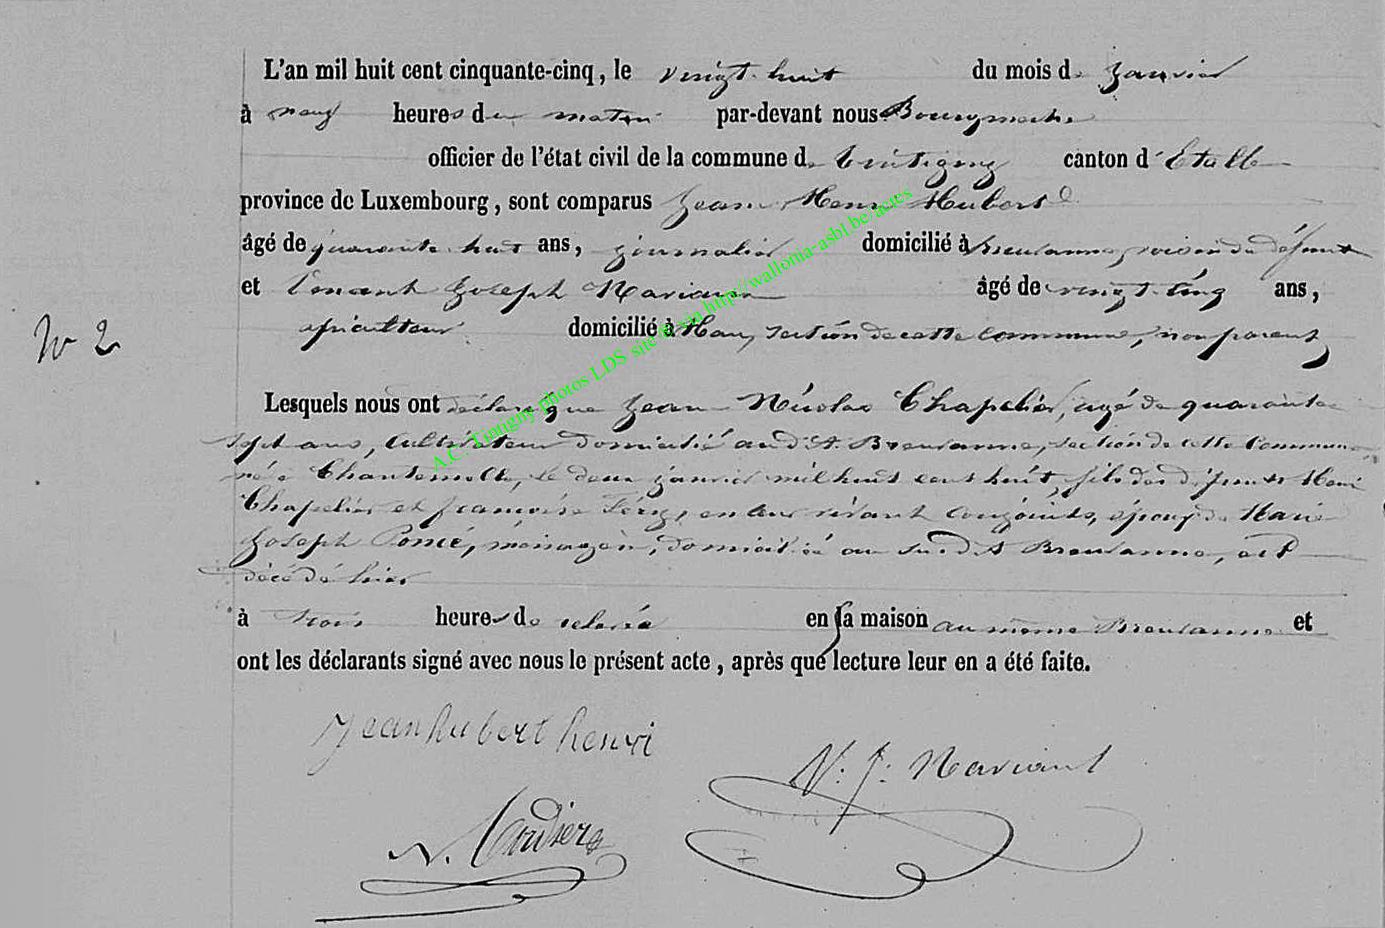 L'an mil huit cent cinquante-cinq, le vingt huit du mois de Janvier
à neuf heures du matin par-devant nous Bourgmestre
officier de l'état civil de la commune de Tintigny canton d'Etalle
province de Luxembourg, sont comparus Jean Henri Hubert
âgé de quarante huit ans, journalier domicilié à Breuvanne, voisin du défunt
et Vincent Joseph Mariant âgé de vingt cinq ans,
N 2
domicilié à Han, section de cette commune, non parent,
Lesquels nous ont déclaré que Jean Nicolas Chapelier, agé de quarante
sept ans, cultivateur domicilié au dt. Breuvanne, section de cette commune
né à Chantemelle, le deux janvier mil huit cent huit, fils des défunts Henri
Chapelier et françoise en leur vivant conjoints, époux de Marie
Joseph Poncé, ménagère, domiciliée au sudt Breuvanne, est
décédé hier
à trois heures de relevée en sa maison au même Breuvanne et
ont les déclarants signé avec nous le présent acte, après que lecture leur en a été faite.
Jean hubert henri
V. J. Mariant
A.C. Tintigny photos LDS site et via http://wallonia-asbl.be/actes